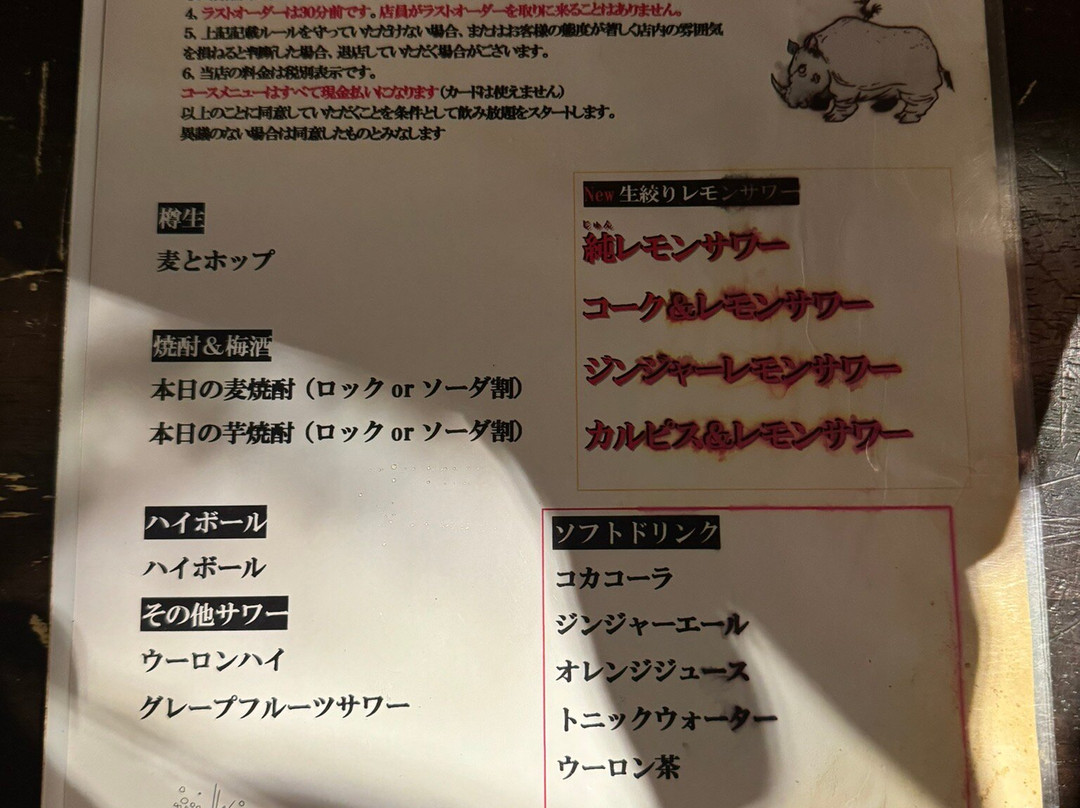 4、ラストオーダーは30分前です。店員がラストオーダーを取りに来ることはありません。
5、上記記載ルールを守っていただけない場合、またはお客様の態度が著しく店内の雰囲気
を損ねると判断した場合、退店していただく場合がございます。
6、当店の料金は税別表示です。
コースメニューはすべて現金払いになります(カードは使えません)
以上のことに同意していただくことを条件として飲み放題をスタートします。
異議のない場合は同意したものとみなします
樽生
麦とホップ
焼酎&梅酒
本日の麦焼酎(ロック or ソーダ割)
本日の芋焼酎(ロック or ソーダ割)
ハイボール
ハイボール
その他サワー
ウーロンハイ
グレープフルーツサワー
New 生絞りレモンサワー
じゅん
純レモンサワー
コーク&レモンサワー
ジンジャーレモンサワー
カルピス&レモンサワー
ソフトドリンク
コカコーラ
ジンジャーエール
オレンジジュース
トニックウォーター
ウーロン茶